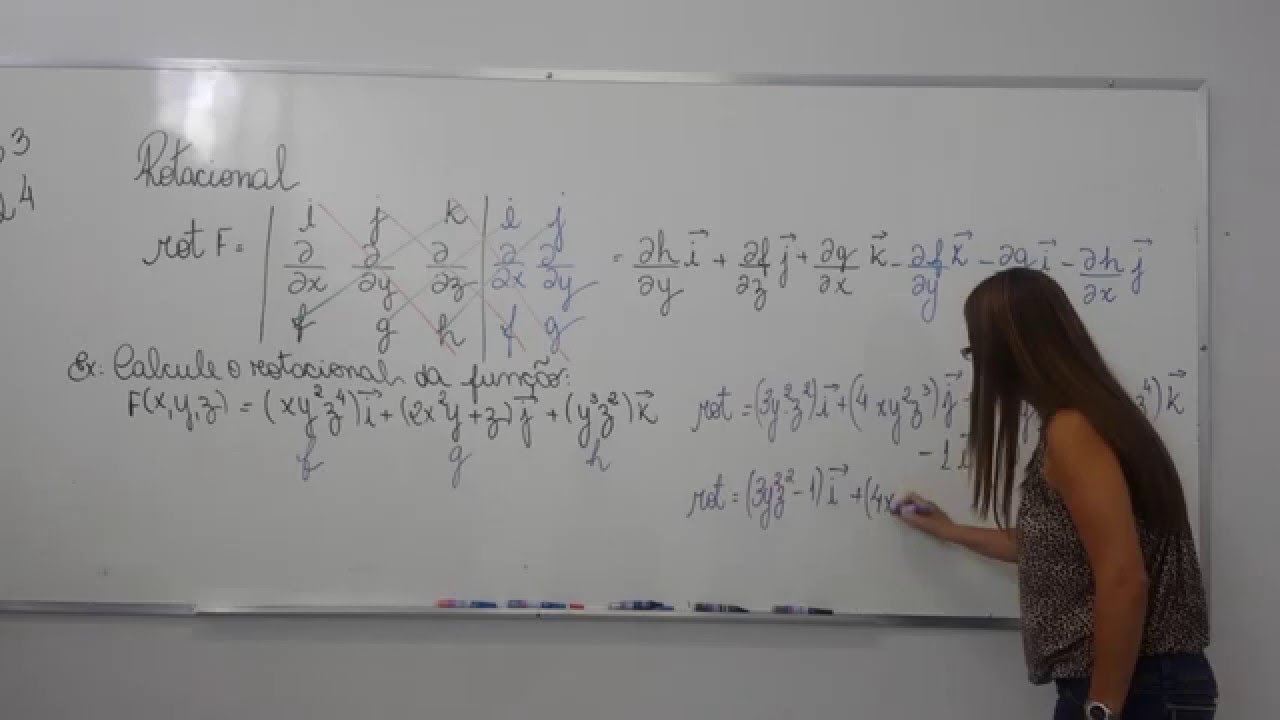 3
4
Rotacional
rot F = | i j k | i j = ∂h/∂y i⃗ + ∂f/∂z j⃗ + ∂g/∂x k⃗ - ∂f/∂y k⃗ - ∂g i⃗ - ∂h/∂x j⃗
∂/∂x ∂/∂y ∂/∂z ∂/∂x ∂/∂y
f g h f g
Ex: Calcule o rotacional da função:
F(x,y,z) = (xy²z⁴)i⃗ + (2x²y+z)j⃗ + (y³z²)k⃗
f g h
rot = (3y²z²)i⃗ + (4xy²z³)j⃗ ⁴)k⃗
- 1i⃗
rot = (3y²z² - 1)i⃗ + (4x